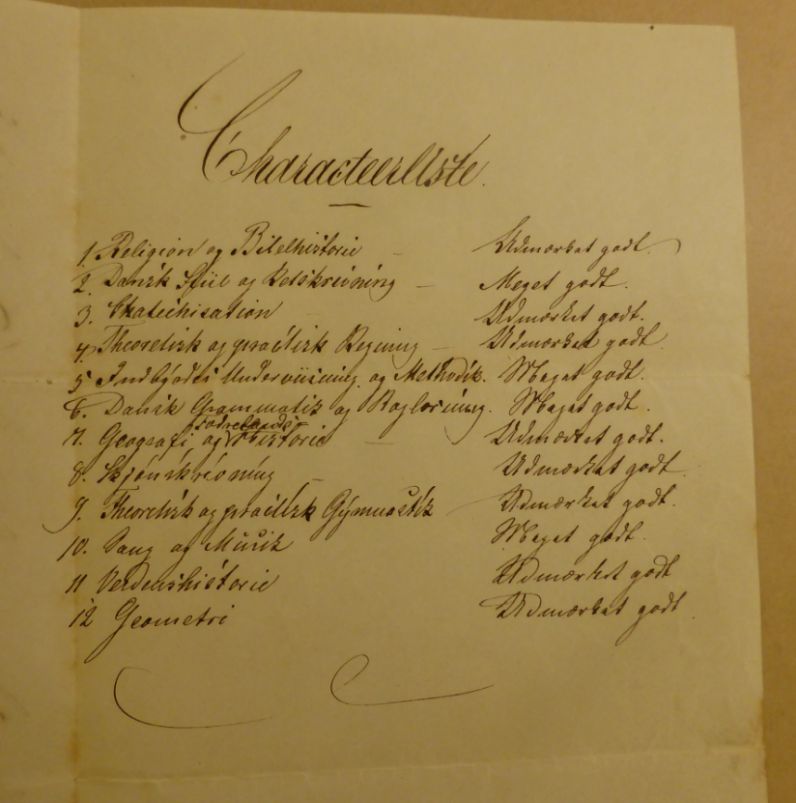 Characteerliste.
1. Religion og Bibelhistorie – Udmærket godt.
2. Dansk Stiil og Retskrivning – Meget godt.
3. Chatechisation – Udmærket godt.
4. Theoretisk og practisk Regning – Udmærket godt.
5 Indbyrdes Underviisning og Methodik. Meget godt.
6. Dansk Grammatik og Meget godt.
Fædrelands-
7. Geografi og Historie – Udmærket godt.
8. Skjønskrivning – Udmærket godt
9. Theoretisk og practisk Gymnastik Udmærket godt.
10. Sang og Musik Meget godt.
11 Verdenshistorie Udmærket godt
12 Geometri Udmærket godt